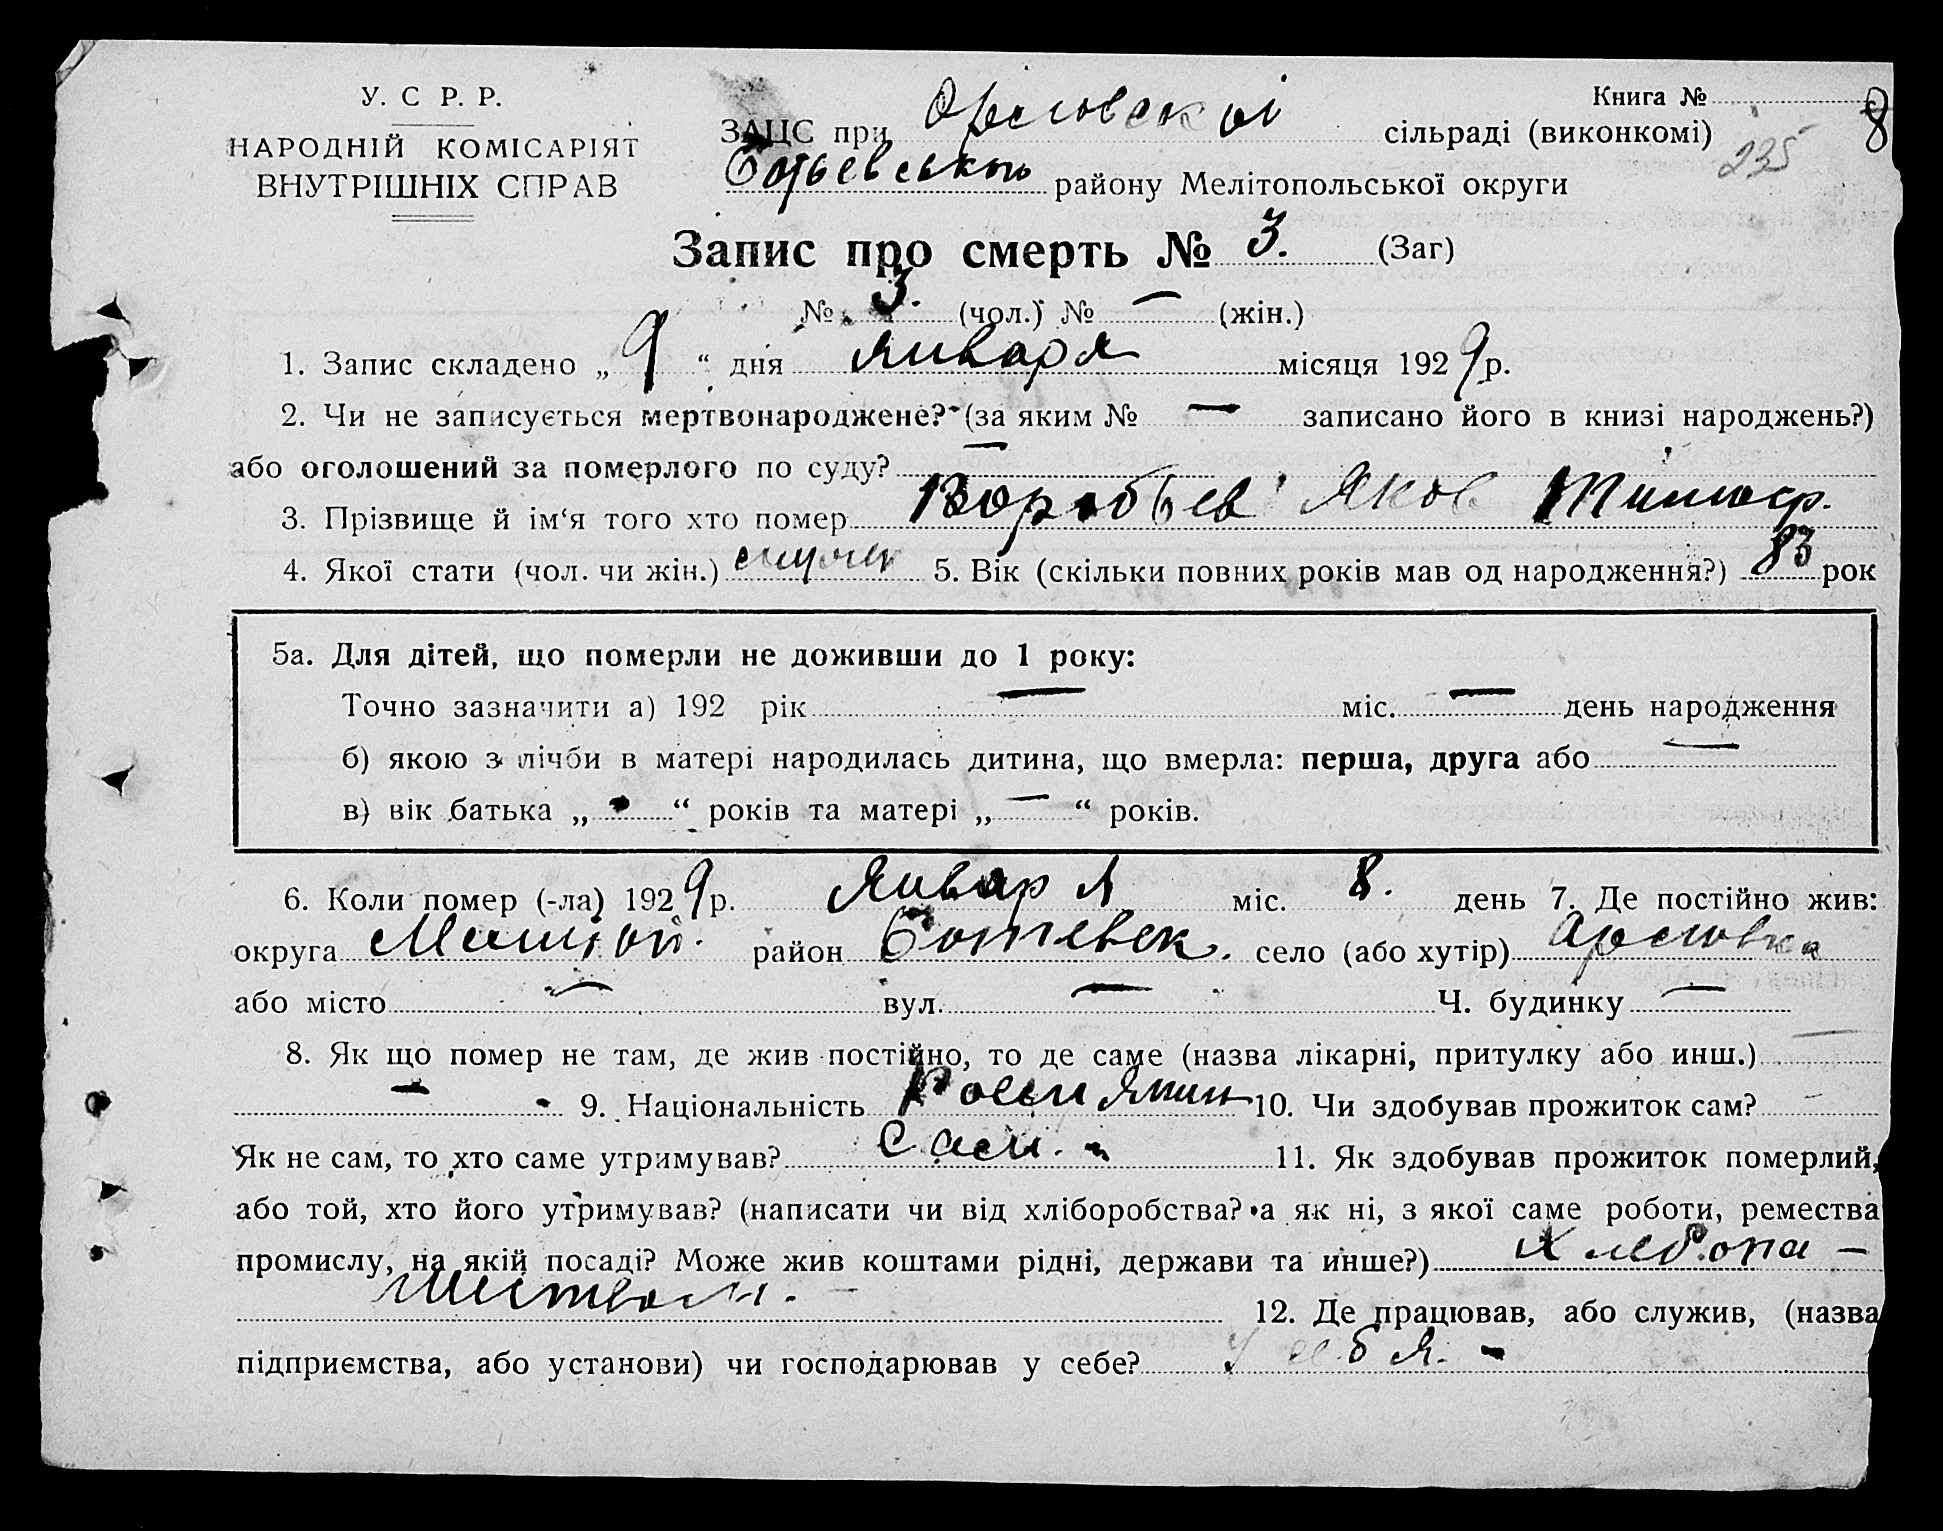 У. С. Р. Р.
НАРОДНІЙ КОМІСАРІЯТ
ВНУТРІШНІХ СПРАВ
Книга № 8
235
ЗАЦС при Орловскоі сільраді (виконкомі)
Ботьевського району Мелітопольської округи
Запис про смерть № 3. (Заг)
№ 3. (чол.) № — (жін.)
1. Запис складено „ 9 “ дня Января місяця 1929 р.
2. Чи не записується мертвонароджене? (за яким № — записано його в книзі народжень?)
або оголошений за померлого по суду? —
3. Прізвище й ім‘я того хто помер Воробьев Яков Тимоф.
4. Якої стати (чол. чи жін.) 5. Вік (скільки повних років мав од народження?) 83 рок
5а. Для дітей, що померли не доживши до 1 року:
Точно зазначити а) 192 рік — міс. — день народження
б) якою з лічби в матері народилась дитина, що вмерла: перша, друга або —
в) вік батька „ “ років та матері „ — “ років.
6. Коли помер (-ла) 1929 р. Января міс. 8. день 7. Де постійно жив:
округа район Ботиевск. село (або хутір) Орловка
або місто — вул. — Ч. будинку —
8. Як що помер не там, де жив постійно, то де саме (назва лікарні, притулку або инш.) —
— 9. Національність Россиянин 10. Чи здобував прожиток сам? —
Як не сам, то хто саме утримував? Сам. - 11. Як здобував прожиток померлий,
або той, хто його утримував? (написати чи від хліборобства? а як ні, з якої саме роботи, ремества
промислу, на якій посаді? Може жив коштами рідні, держави та инше?) Хлебопа —
шеством. —
12. Де працював, або служив, (назва
підприємства, або установи) чи господарював у себе? У себя. -